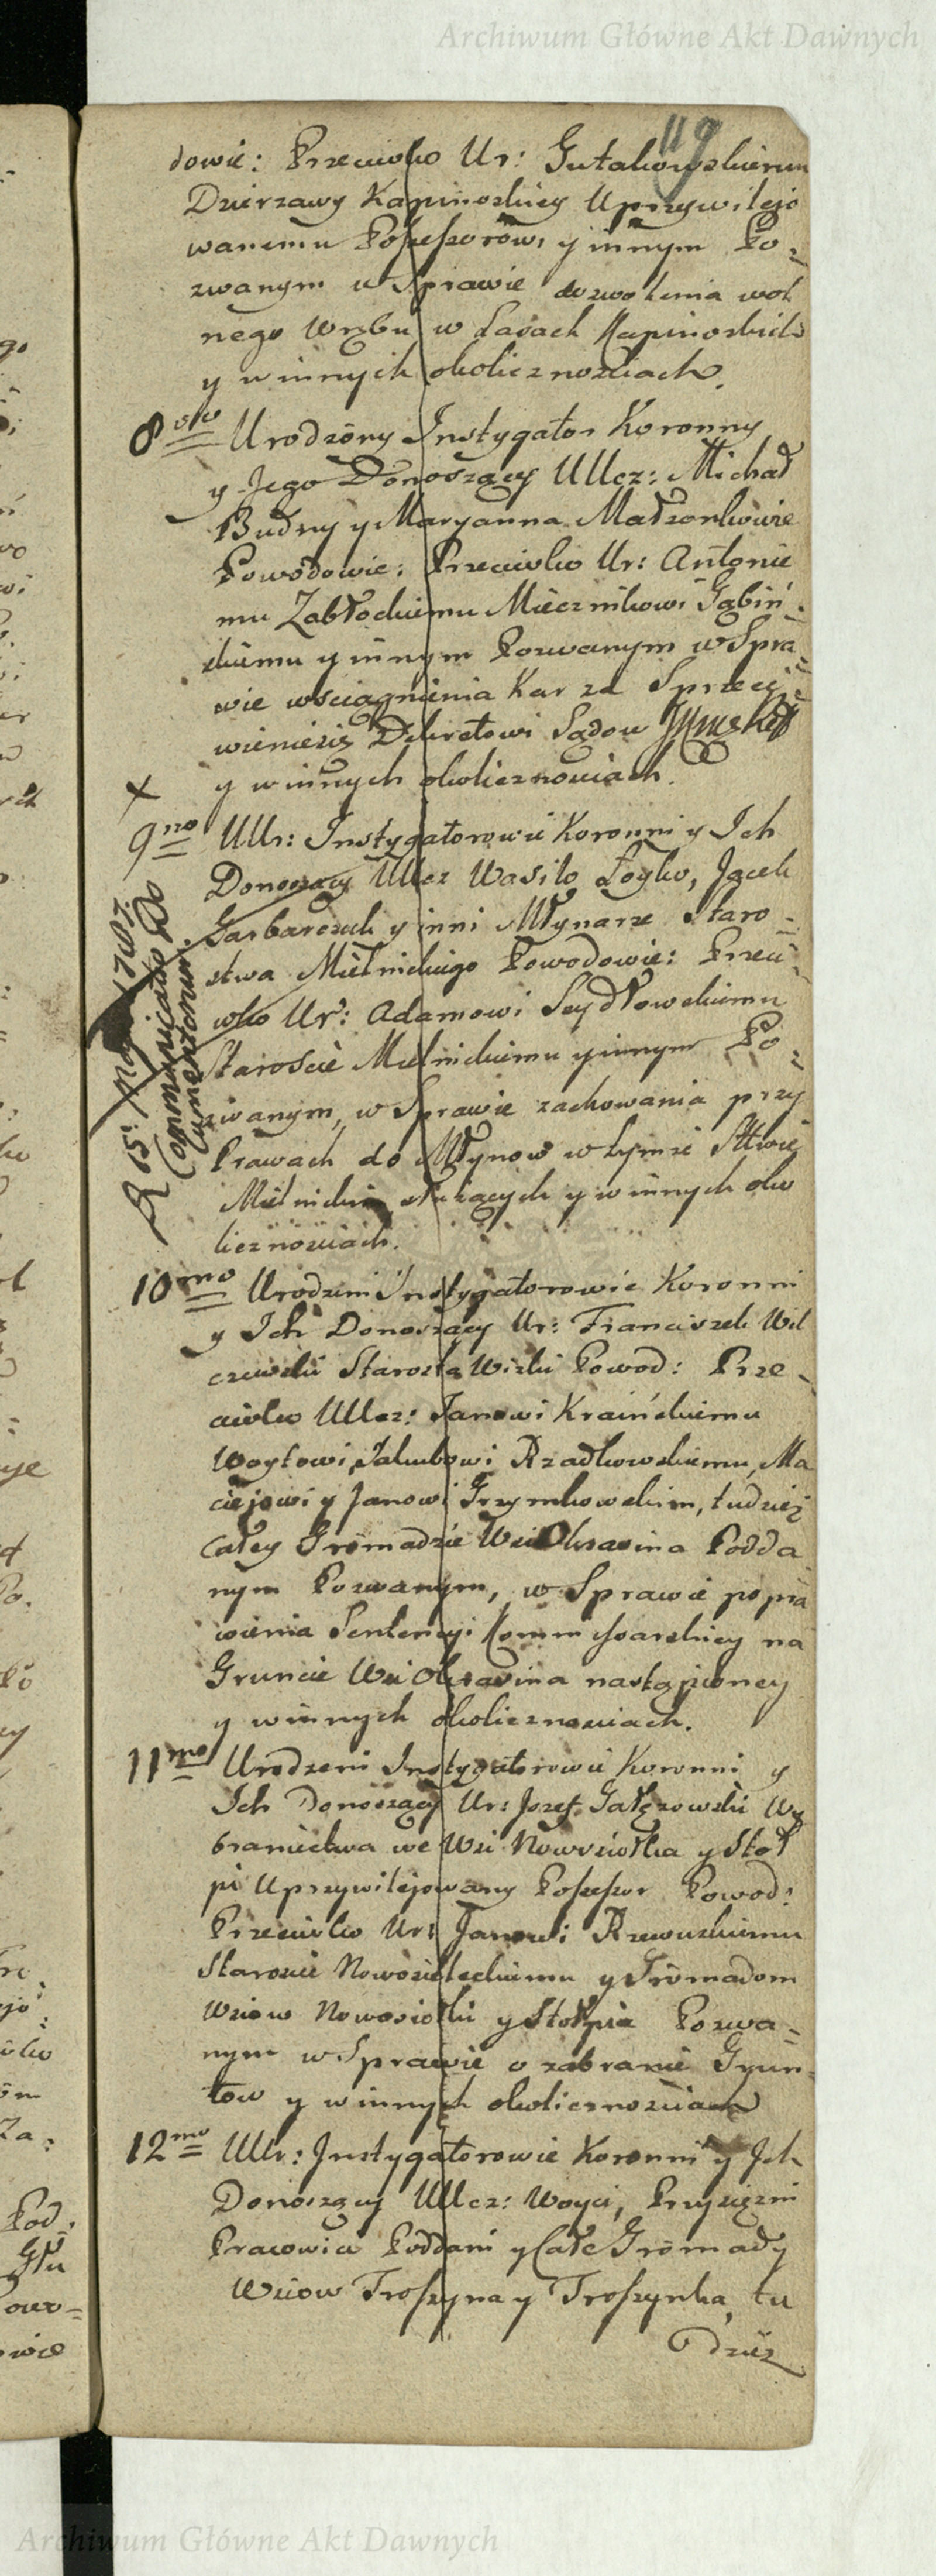 Archiwum Główne Akt Dawnych
119
dowie: Przeciwko Ur: Gutakowskiemu
Dzierzawy Kapinoskiey Uprzywilejo
wanemu Possessorowi y innym Po-
zwanym w Sprawie dozwolenia wol
nego Wrębu w Lasach Kapinoskich
y w innych okolicznosciach.
8vo Urodzony Instygator Koronny
y Jego Donoszący UUcz: Michał
Budny y Maryanna Małzonkowie
Powodowie: Przeciwko Ur: Antonie
mu Zabłockiemu Miecznikowi Gąbiń
skiemu y innym Pozwanym w Spra
wie wsciągnienia Kar za Sprzeci-
wienie się Dekretowi Sądow
y w innych okolicznosciach.
X
9no UUr: Instygatorowie Koronni y Ich
Donoszący UUcz Wasilo Łoyko, Jącek
Garbarczuk y inni Młynarze Staro-
stwa Mielnickiego Powodowie: Przeci
wko Ur: Adamowi Szydłowskiemu
Staroscie Mielnickiemu y innym Po-
zwanym, w Sprawie zachowania przy
Prawach do Młynow w tymze Sttwie
Mielnickim służących y w innych oko
licznosciach.
Communicatio Do
cumentorum.
10mo Urodzeni Instygatorowie Koronni
y Ich Donoszący Ur: Franciszek Wil
czewski Starosta Wizki Powod: Prze-
ciwko UUcz: Janowi Kraińskiemu
Woytowi, Jakubowi Rządkowskiemu, Ma
ciejowi y Janowi Grzymkowskim, tudziez
Całey Gromadzie Wsi Okrasina Podda
nym Pozwanym, w Sprawie popra
wienia Sentencyi Kommissarskiey na
Gruncie Wsi Okrasina nastąpioney
y w innych okolicznosciach.
11mo Urodzeni Instygatorowie Koronni y
Ich Donoszący Ur: Jozef Gałęzowski Wy
braniectwa we Wsi Nowosiołka y Stoł
pi Uprzywilejowany Possessor Powod:
Przeciwko Ur: Janowi Rzewuskiemu
Staroscie Nowosieleckiemu y Gromadom
Wsiow Nowosiołki y Stołpia Pozwa-
nym w Sprawie o zabranie Grun
tow y w innych okolicznosciach
12mo UUr: Instygatorowie Koronni y Ich
Donoszący UUcz: Woyci, Przysięzni
Pracowici Poddani y Całe Gromady
Wsiow Troszyna y Troszynka, tu
dziez
Archiwum Główne Akt Dawnych